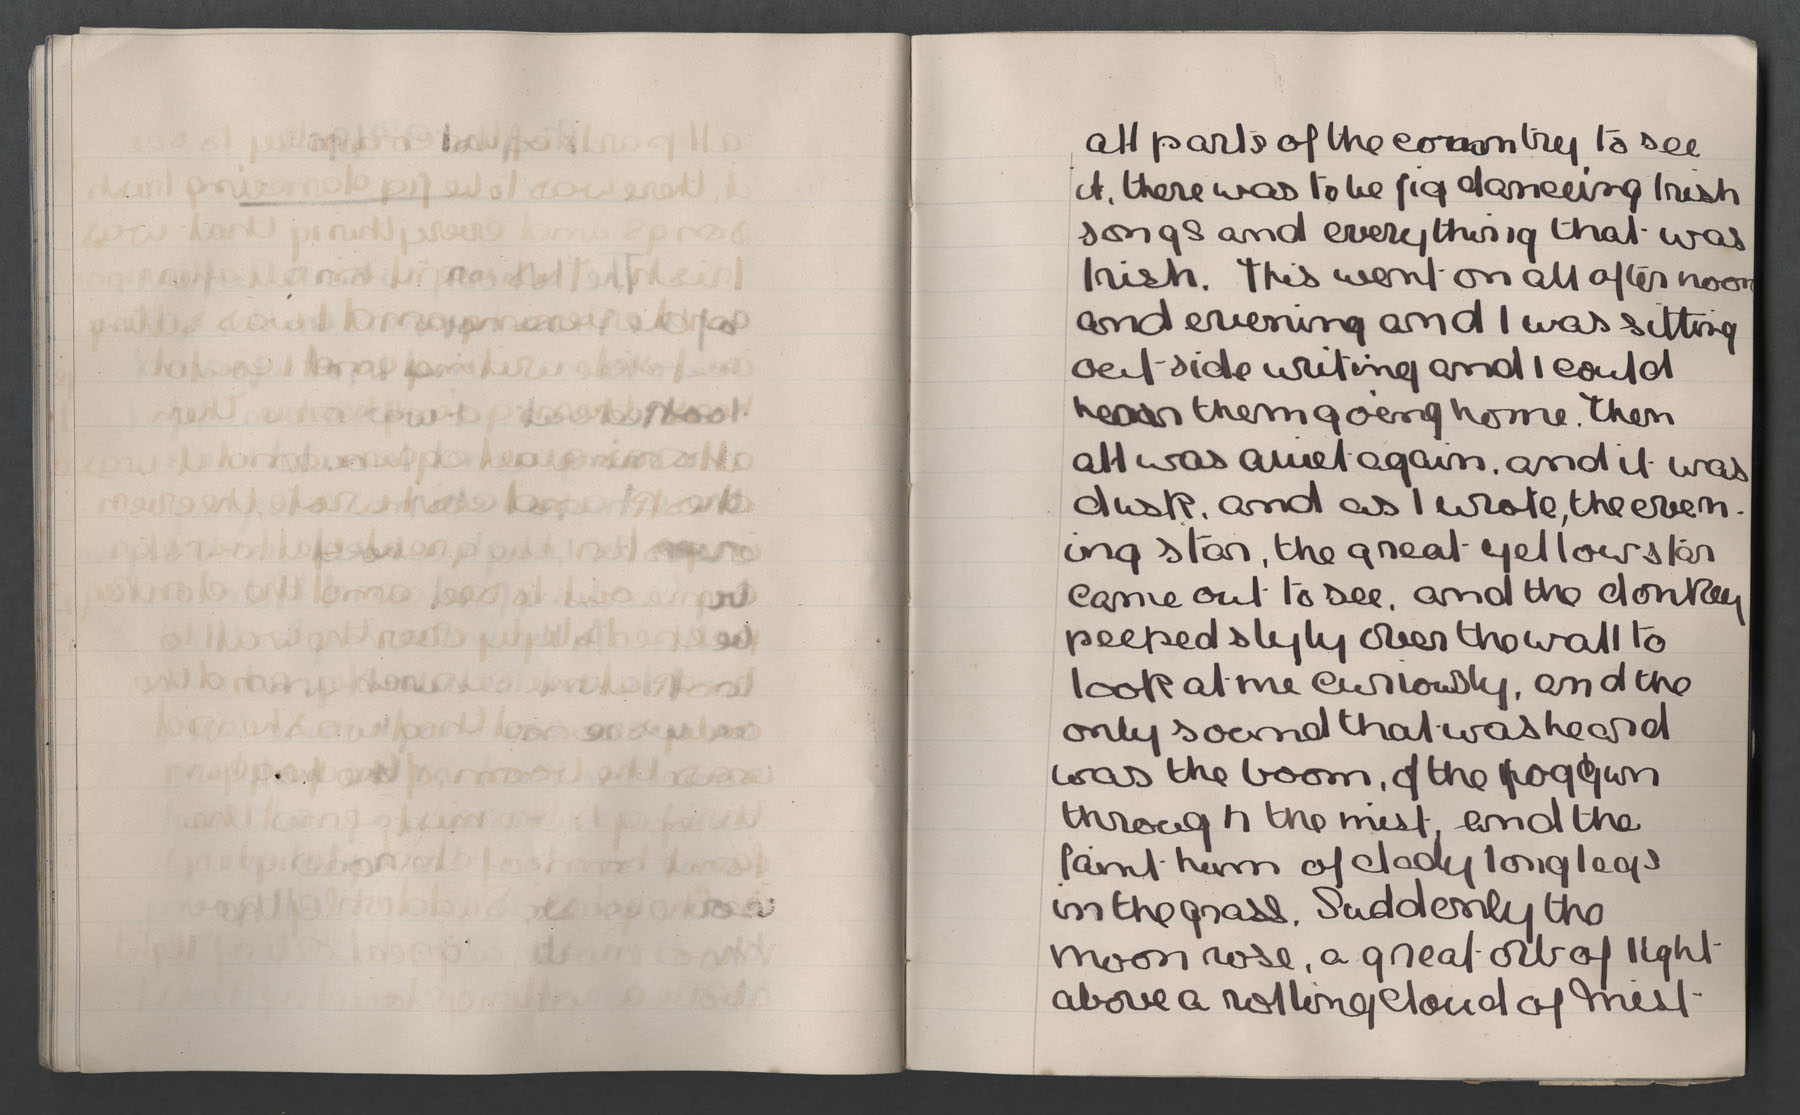 all parts of the country to see
it, there was to be jig danceing Irish
songs and everything that was
Irish. This went on all after noon
and evening and I was sitting
out-side writing and I could
hear them going home. Then
all was quiet again, and it was
dusk, and as I wrote, the even-
ing star, the great yellow star
came out to see, and the donkey
peeped slyly over the wall to
look at me curiously, and the
only sound that was heard
was the boom, of the fog gun
through the mist, and the
faint hum of dady long legs
in the grass. Suddenly the
moon rose, a great orb of light
above a rolling cloud of mist